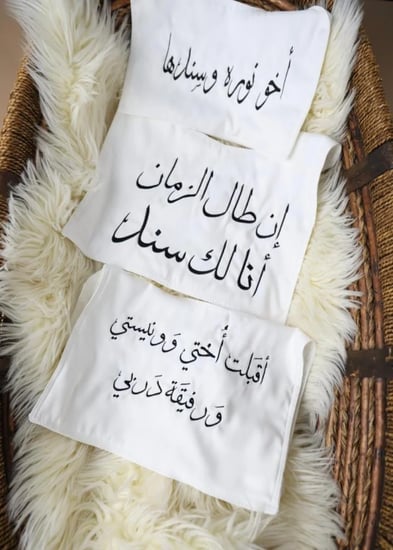 أخو نوره وسندها
إن طال الزمان
أنا لك سند
أقبَلت أُختي وَونيستي
وَرفيقَة دَربي